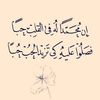 إن محمدا له في القلب حبا
فصلوا عليه كي تزيد الحب حبا